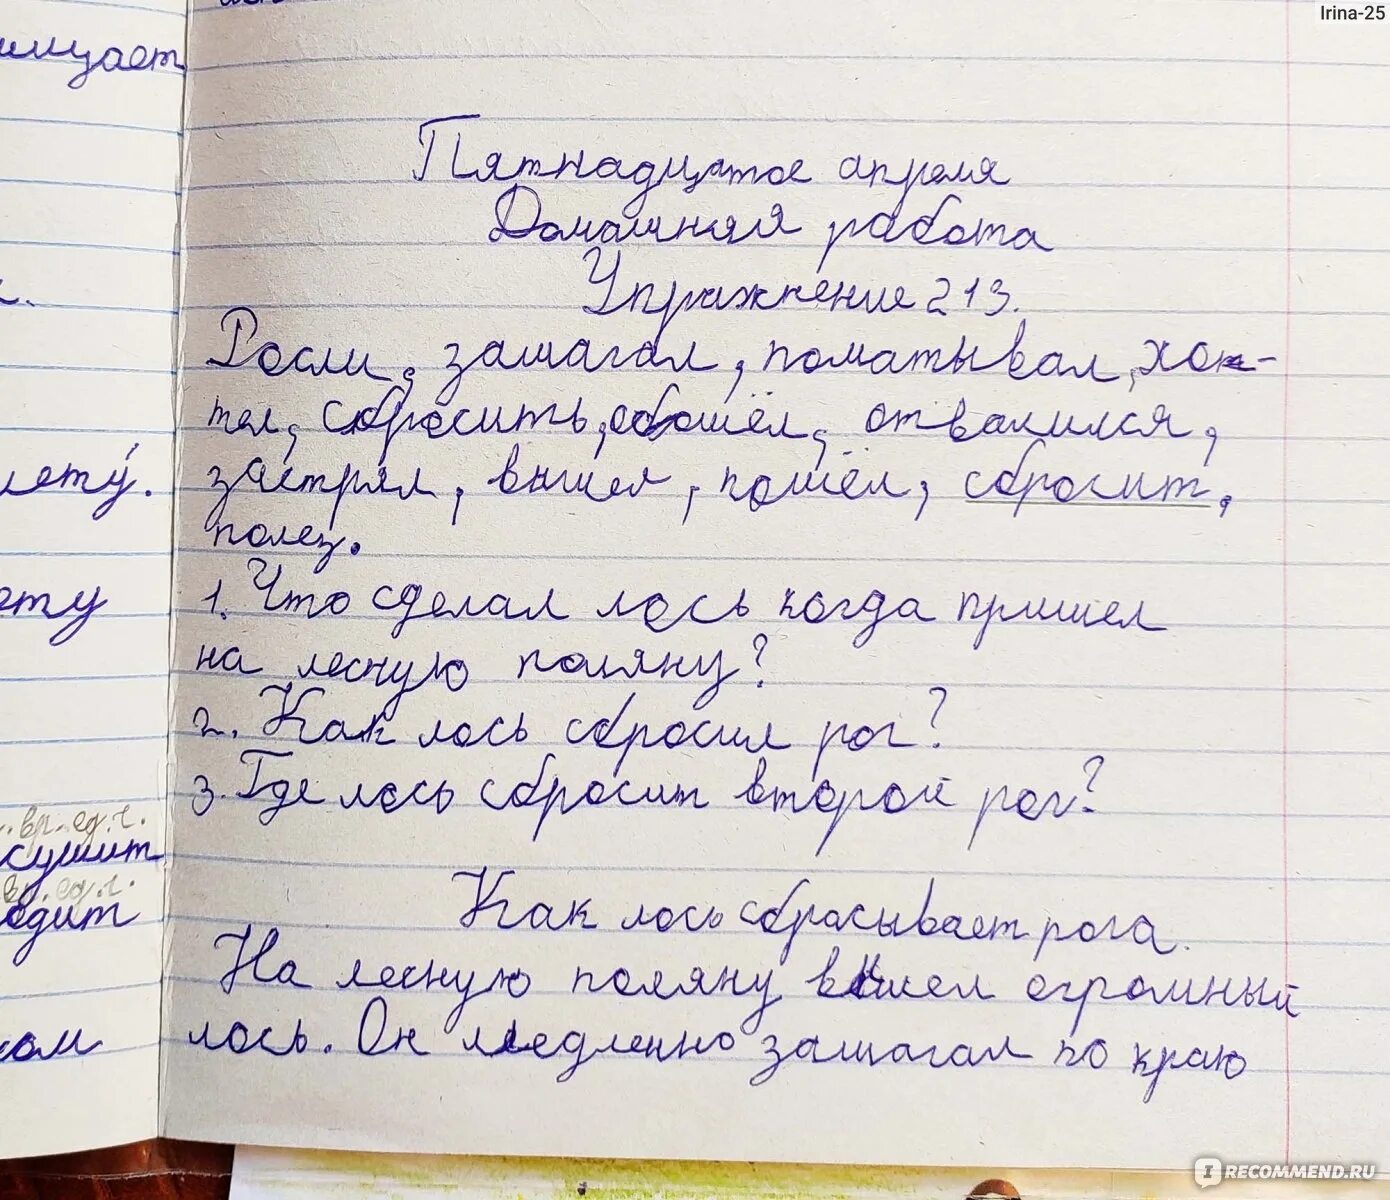 Irina-25
Пятнадцатое апреля
Домашняя работа
Упражнение 213.
Росли, зашагал, поматывал, хо-
тел, сбросить, обошёл, отвалился,
застрял, вышел, пошёл, сбросит,
полез.
1. Что сделал лось когда пришел
на лесную поляну?
2. Как лось сбросил рог?
3. Где лось сбросит второй рог?
Как лось сбрасывает рога.
На лесную поляну вышел огромный
лось. Он медленно зашагал по краю
лету.
вр. ед. ч.
сушит
ед. ч.
одит
ом
IRECOMMEND.RU